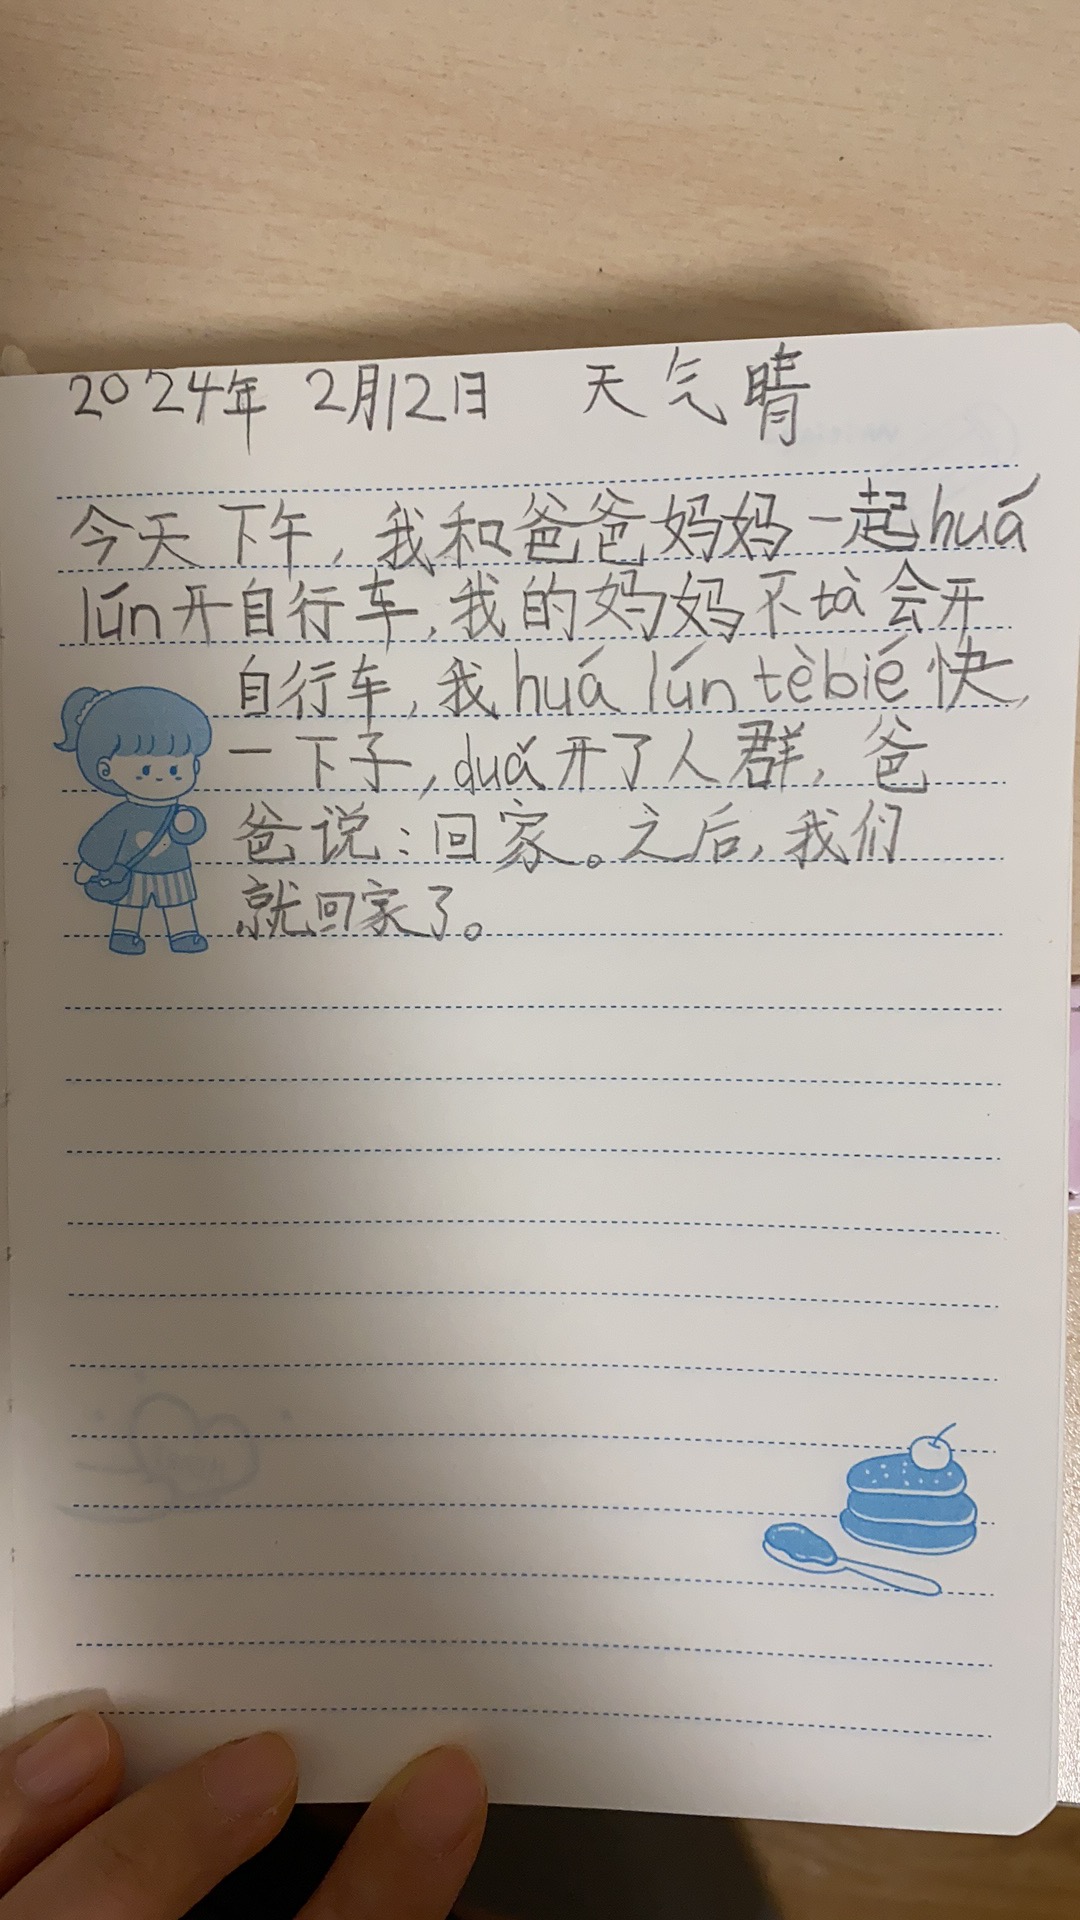 2024年 2月12日 天气晴
今天下午,我和爸爸妈妈一起huá
lún开自行车,我的妈妈不tà会开
自行车,我huá lún tèbié快,
一下子,duǒ开了人群,爸
爸说:回家。之后,我们
就回家了。